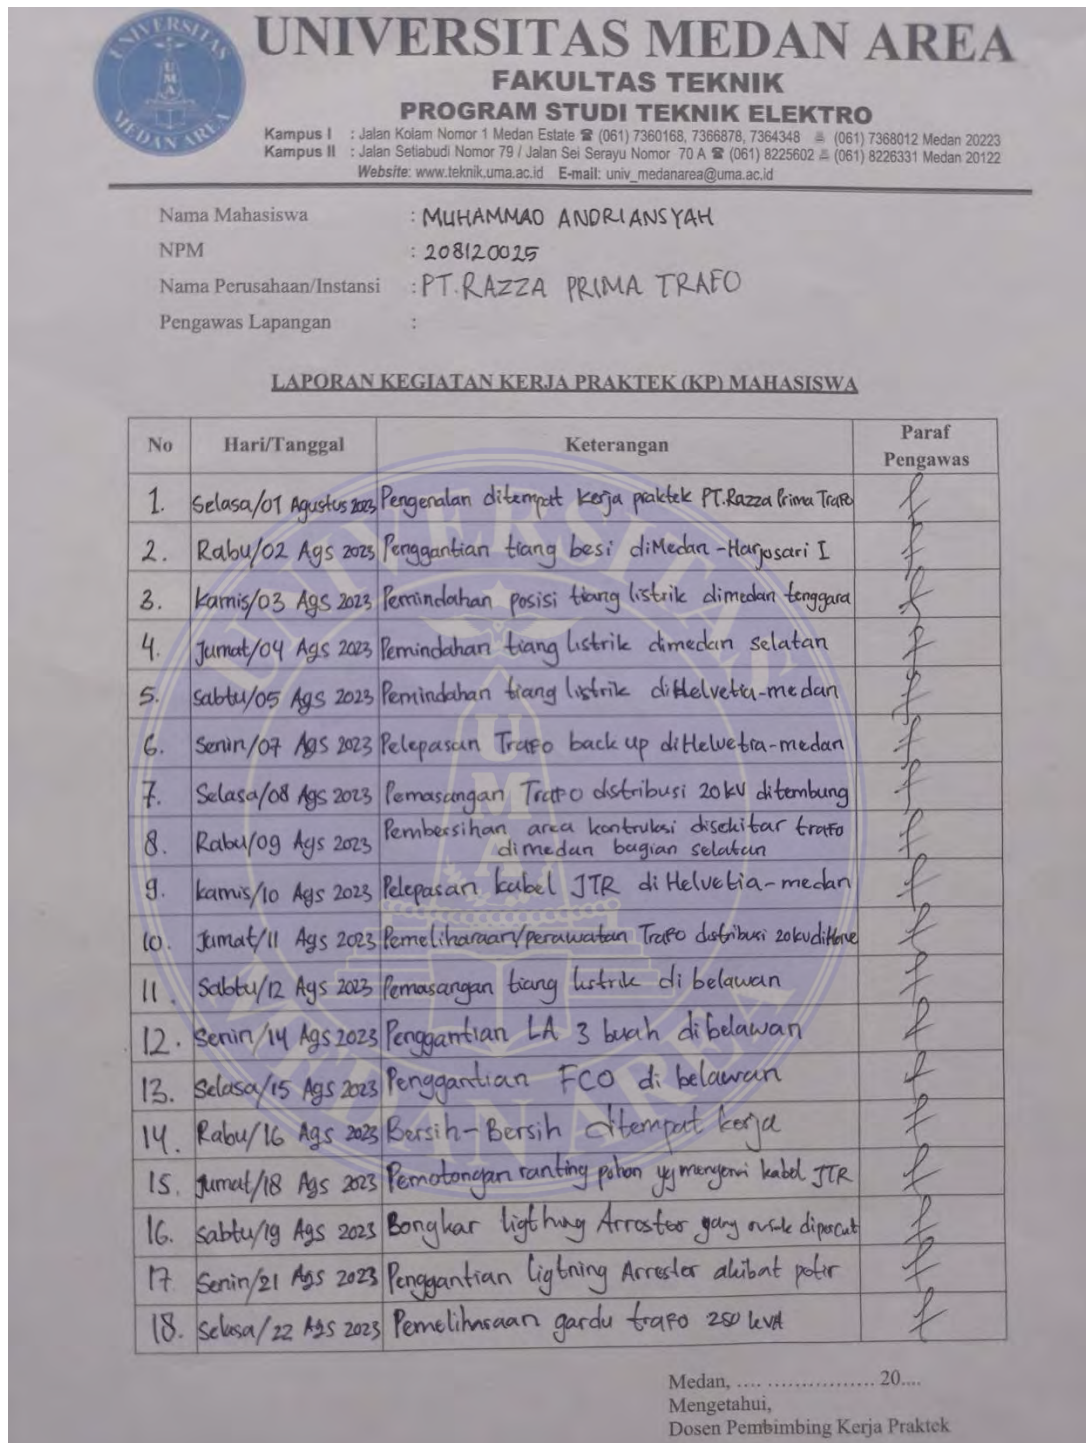 UNIVERSITAS MEDAN AREA
FAKULTAS TEKNIK
PROGRAM STUDI TEKNIK ELEKTRO
Kampus I : Jalan Kolam Nomor 1 Medan Estate ☎ (061) 7360168, 7366878, 7364348 (061) 7368012 Medan 20223
Kampus II : Jalan Setiabudi Nomor 79 / Jalan Sei Serayu Nomor 70 A ☎ (061) 8225602 (061) 8226331 Medan 20122
Website: www.teknik.uma.ac.id E-mail: univ_medanarea@uma.ac.id
Nama Mahasiswa : MUHAMMAD ANDRIANSYAH
NPM : 208120025
Nama Perusahaan/Instansi : PT.RAZZA PRIMA TRAFO
Pengawas Lapangan :
LAPORAN KEGIATAN KERJA PRAKTEK (KP) MAHASISWA
No Hari/Tanggal Keterangan Paraf Pengawas
1. Selasa/01 Agustus 2023 Pengenalan ditempat kerja praktek PT.Razza Prima Trafo
2. Rabu/02 Ags 2023 Penggantian tiang besi diMedan-Harjosari I
3. Kamis/03 Ags 2023 Pemindahan posisi tiang listrik dimedan tenggara
4. Jumat/04 Ags 2023 Pemindahan tiang listrik dimedan selatan
5. Sabtu/05 Ags 2023 Pemindahan tiang listrik diHelvetia-medan
6. Senin/07 Ags 2023 Pelepasan Trafo back up diHelvetia-medan
7. Selasa/08 Ags 2023 Pemasangan Trafo distribusi 20kV ditembung
8. Rabu/09 Ags 2023 Pembersihan area kontruksi disekitar trafo
dimedan bagian selatan
9. Kamis/10 Ags 2023 Pelepasan kabel JTR di Helvetia-medan
10. Jumat/11 Ags 2023 Pemeliharaan/perawatan Trafo distribusi 20kv
11. Sabtu/12 Ags 2023 Pemasangan tiang listrik di belawan
12. Senin/14 Ags 2023 Penggantian LA 3 buah dibelawan
13. Selasa/15 Ags 2023 Penggantian FCO di belawan
14. Rabu/16 Ags 2023 Bersih-Bersih ditempat kerja
15. Jumat/18 Ags 2023 Pemotongan ranting pohon yg mengenai kabel JTR
16. Sabtu/19 Ags 2023 Bongkar ligthning Arrester yang rusak dipercut
17 Senin/21 Ags 2023 Penggantian Ligtning Arrester akibat petir
18. Selasa/22 Ags 2023 Pemeliharaan gardu trafo 250 kVA
Medan, .... ................. 20....
Mengetahui,
Dosen Pembimbing Kerja Praktek